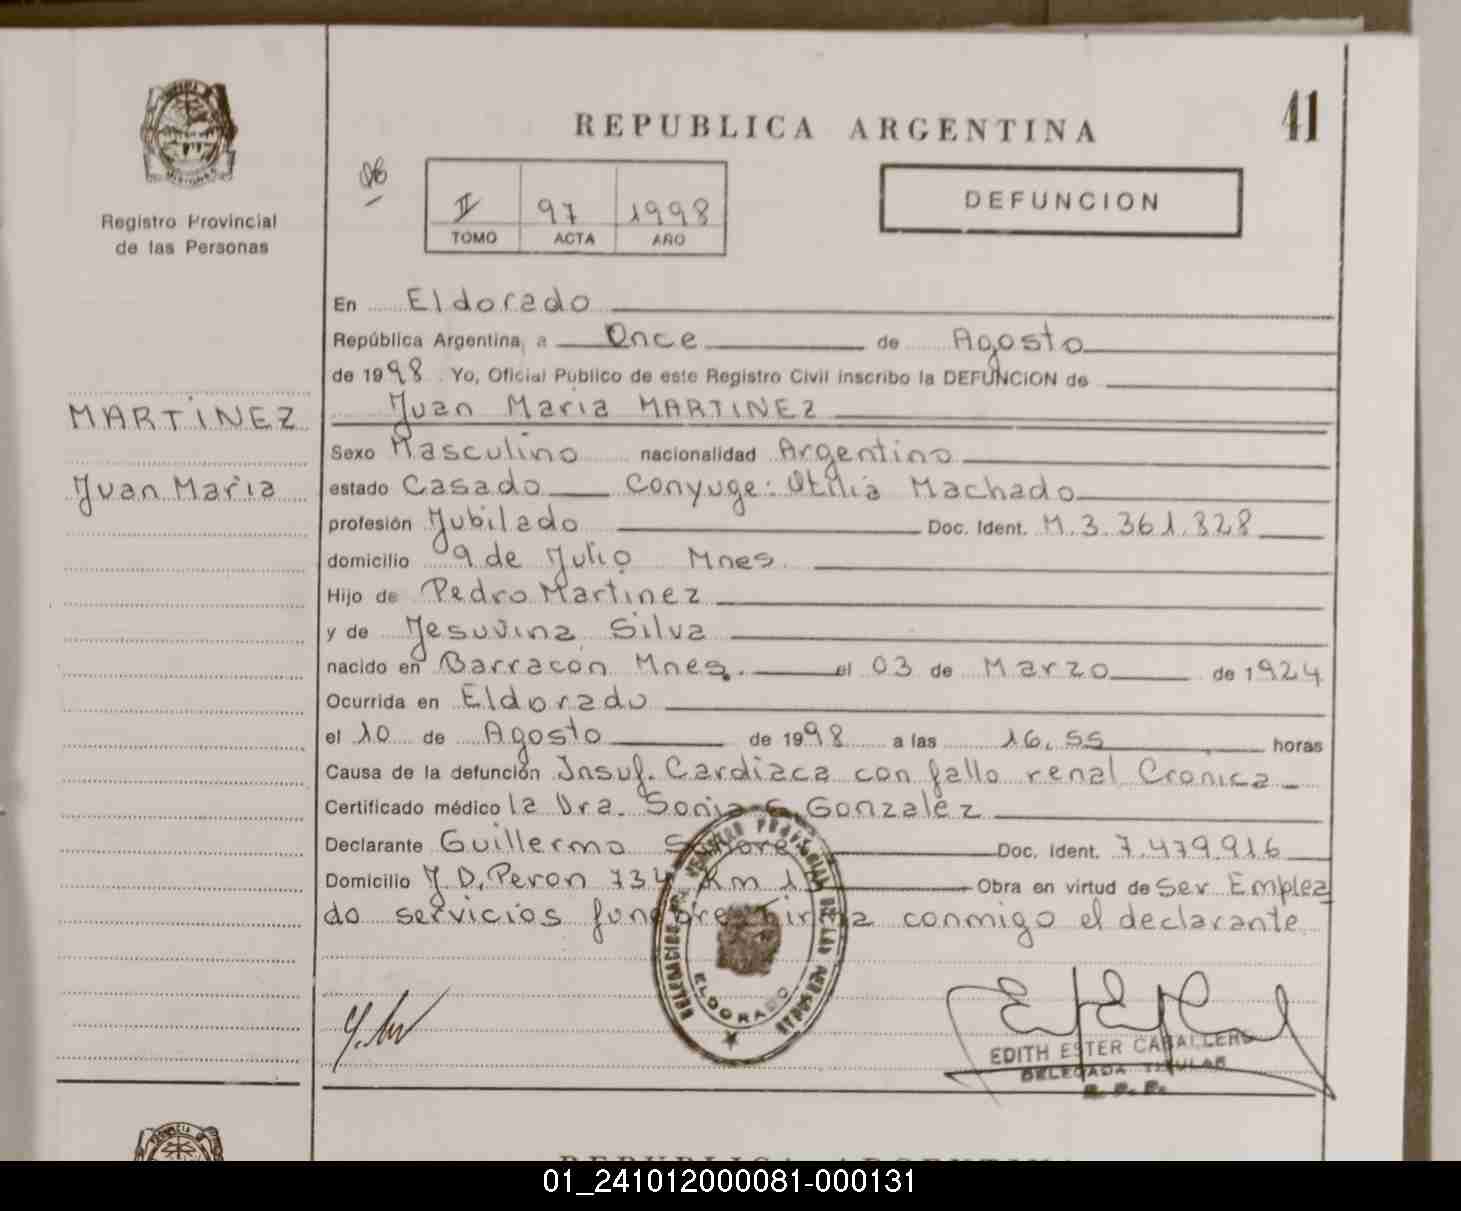 REPUBLICA ARGENTINA
41
Registro Provincial
de las Personas
II 97 1998
TOMO ACTA AÑO
DEFUNCION
En Eldorado
República Argentina, a Once de Agosto
de 1998 Yo, Oficial Publico de este Registro Civil inscribo la DEFUNCION de
MARTINEZ
Juan Maria
Juan Maria MARTINEZ
Sexo Masculino nacionalidad Argentino
estado Casado Conyuge: Otilia Machado
profesión Jubilado Doc. Ident. M.3.361.828
domicilio 9 de Julio Mnes.
Hijo de Pedro Martinez
y de Jesuvina Silva
nacido en Barracon Mnes. el 03 de Marzo de 1924
Ocurrida en Eldorado
el 10 de Agosto de 1998 a las 16,55 horas
Causa de la defunción Insuf. Cardiaca con fallo renal Cronica
Certificado médico la Dra. Sonia Gonzalez
Declarante Guillermo Doc. Ident. 7.479.916
Domicilio J.D. Peron 734 Km Obra en virtud de Ser Emplea
do servicios conmigo el declarante
DELEGACION REGISTRO PROVINCIAL DE LAS PERSONAS
ELDORADO
EDITH ESTER CABALLERO
DELEGADA TITULAR
R. P. P.
REPUBLICA ARGENTINA
01_241012000081-000131